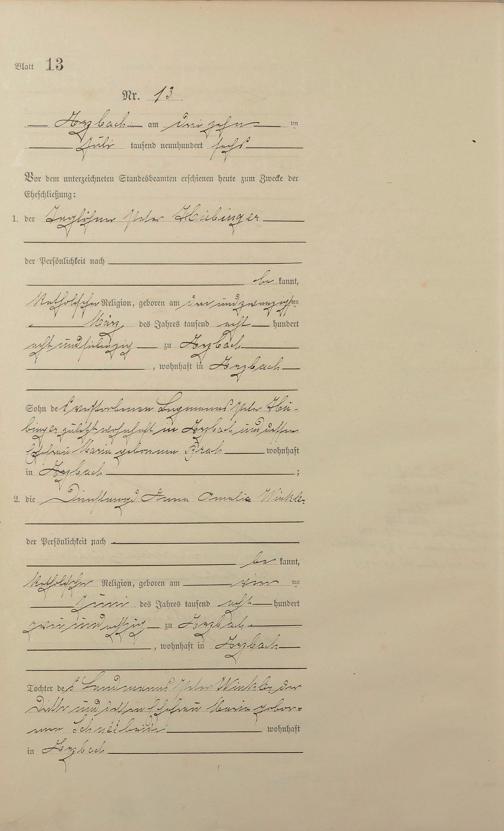 Blatt 13
Nr. 13
Arzbach am dreizehn ten
Juli tausend neunhundert sechs
Vor dem unterzeichneten Standesbeamten erschienen heute zum Zwecke der
Eheschließung:
1. der Taglöhner Peter Hübinger
der Persönlichkeit nach
be kannt,
katholischer Religion, geboren am drei und zwanzigsten
März des Jahres tausend acht hundert
acht und siebenzig zu Arzbach
, wohnhaft in Arzbach
Sohn des verstorbenen Bergmanns Peter Hü-
binger zuletzt wohnhaft in Arzbach und dessen
Ehefrau Maria geborenen wohnhaft
in Arzbach ;
2. die Anna Amalia
der Persönlichkeit nach
be kannt,
katholischer Religion, geboren am vier ten
Juni des Jahres tausend acht hundert
zwei und achtzig zu Arzbach
, wohnhaft in Arzbach
Tochter des Landmanns Peter der
und dessen Ehefrau Maria gebor-
nen wohnhaft
in Arzbach